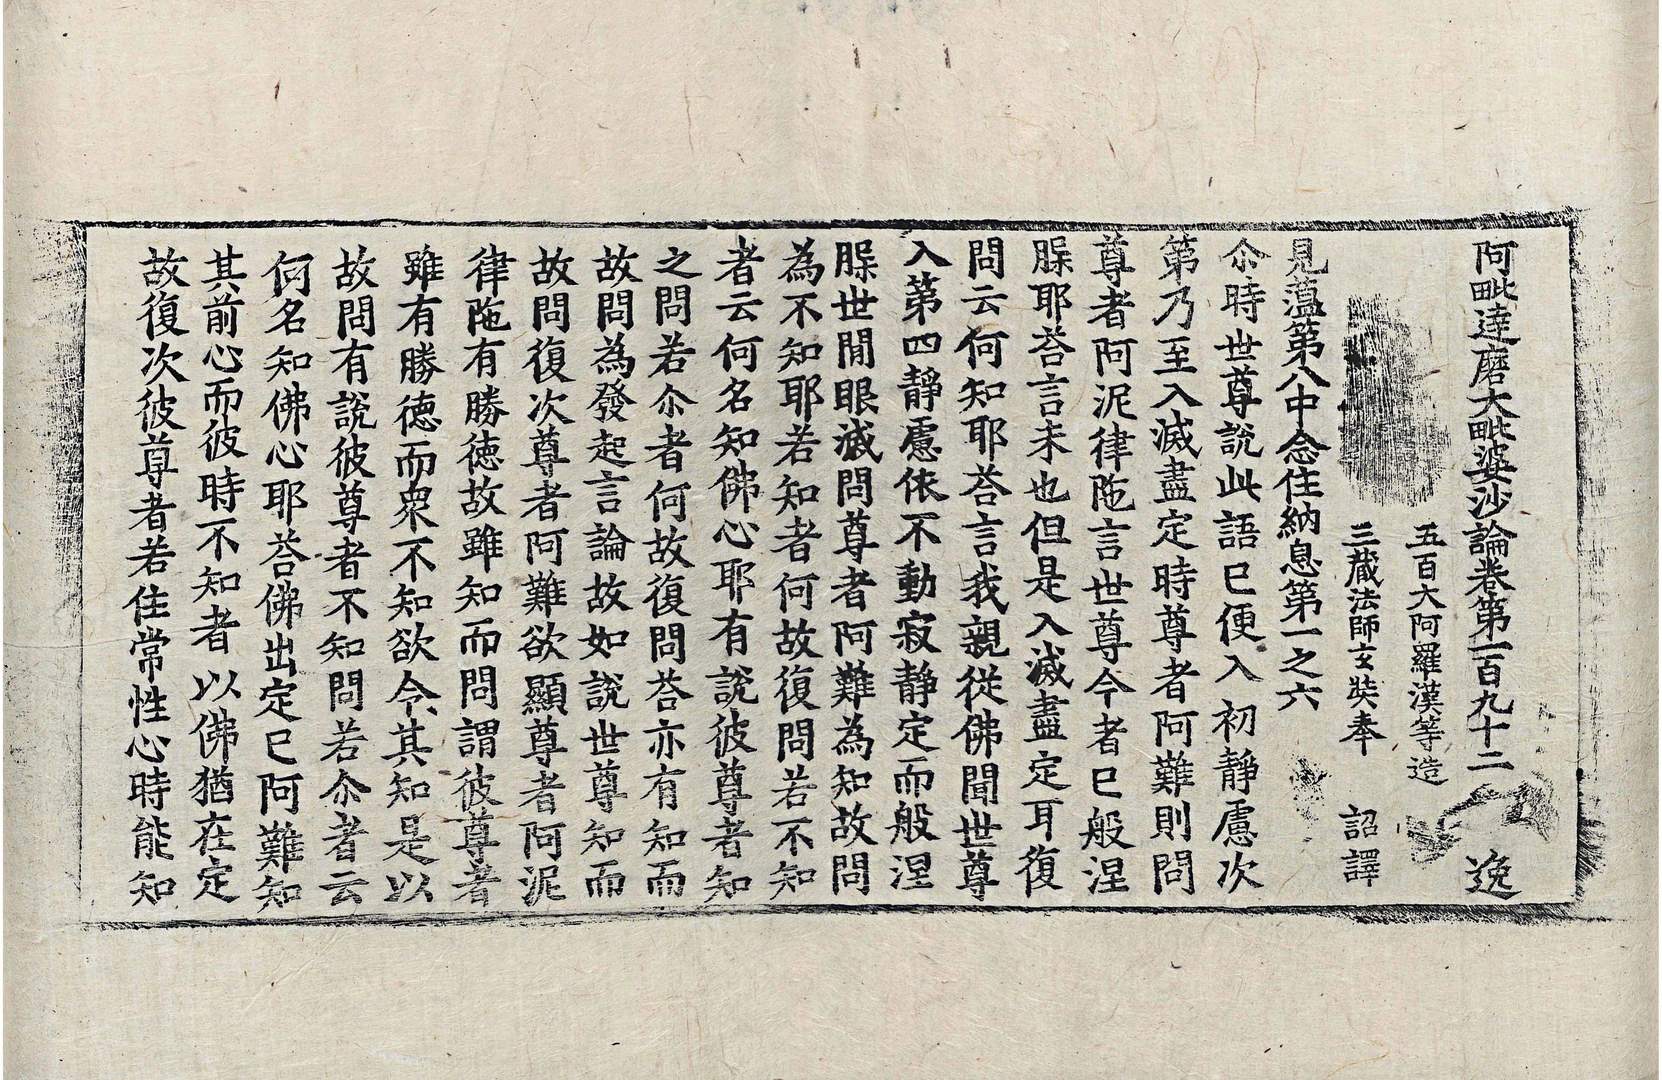 阿毗達磨大毗婆沙論卷第一百九十二　逸
五百大阿羅漢等造
三藏法師玄奘奉　詔譯
見蘊第八中念住納息第一之六
尒時世尊說此語已便入初靜慮次
第乃至入滅盡定時尊者阿難則問
尊者阿泥律陁言世尊今者已般涅
腂耶荅言未也但是入滅盡定耳復
問云何知耶荅言我親從佛聞世尊
入第四靜慮依不動寂靜定而般涅
腂世間眼滅問尊者阿難為知故問
為不知耶若知者何故復問若不知
者云何名知佛心耶有說彼尊者知
之問若尒者何故復問荅亦有知而
故問為發起言論故如說世尊知而
故問復次尊者阿難欲顯尊者阿泥
律陁有勝德故雖知而問謂彼尊者
雖有勝德而眾不知欲令其知是以
故問有說彼尊者不知問若尒者云
何名知佛心耶荅佛出定已阿難知
其前心而彼時不知者以佛猶在定
故復次彼尊者若住常性心時能知